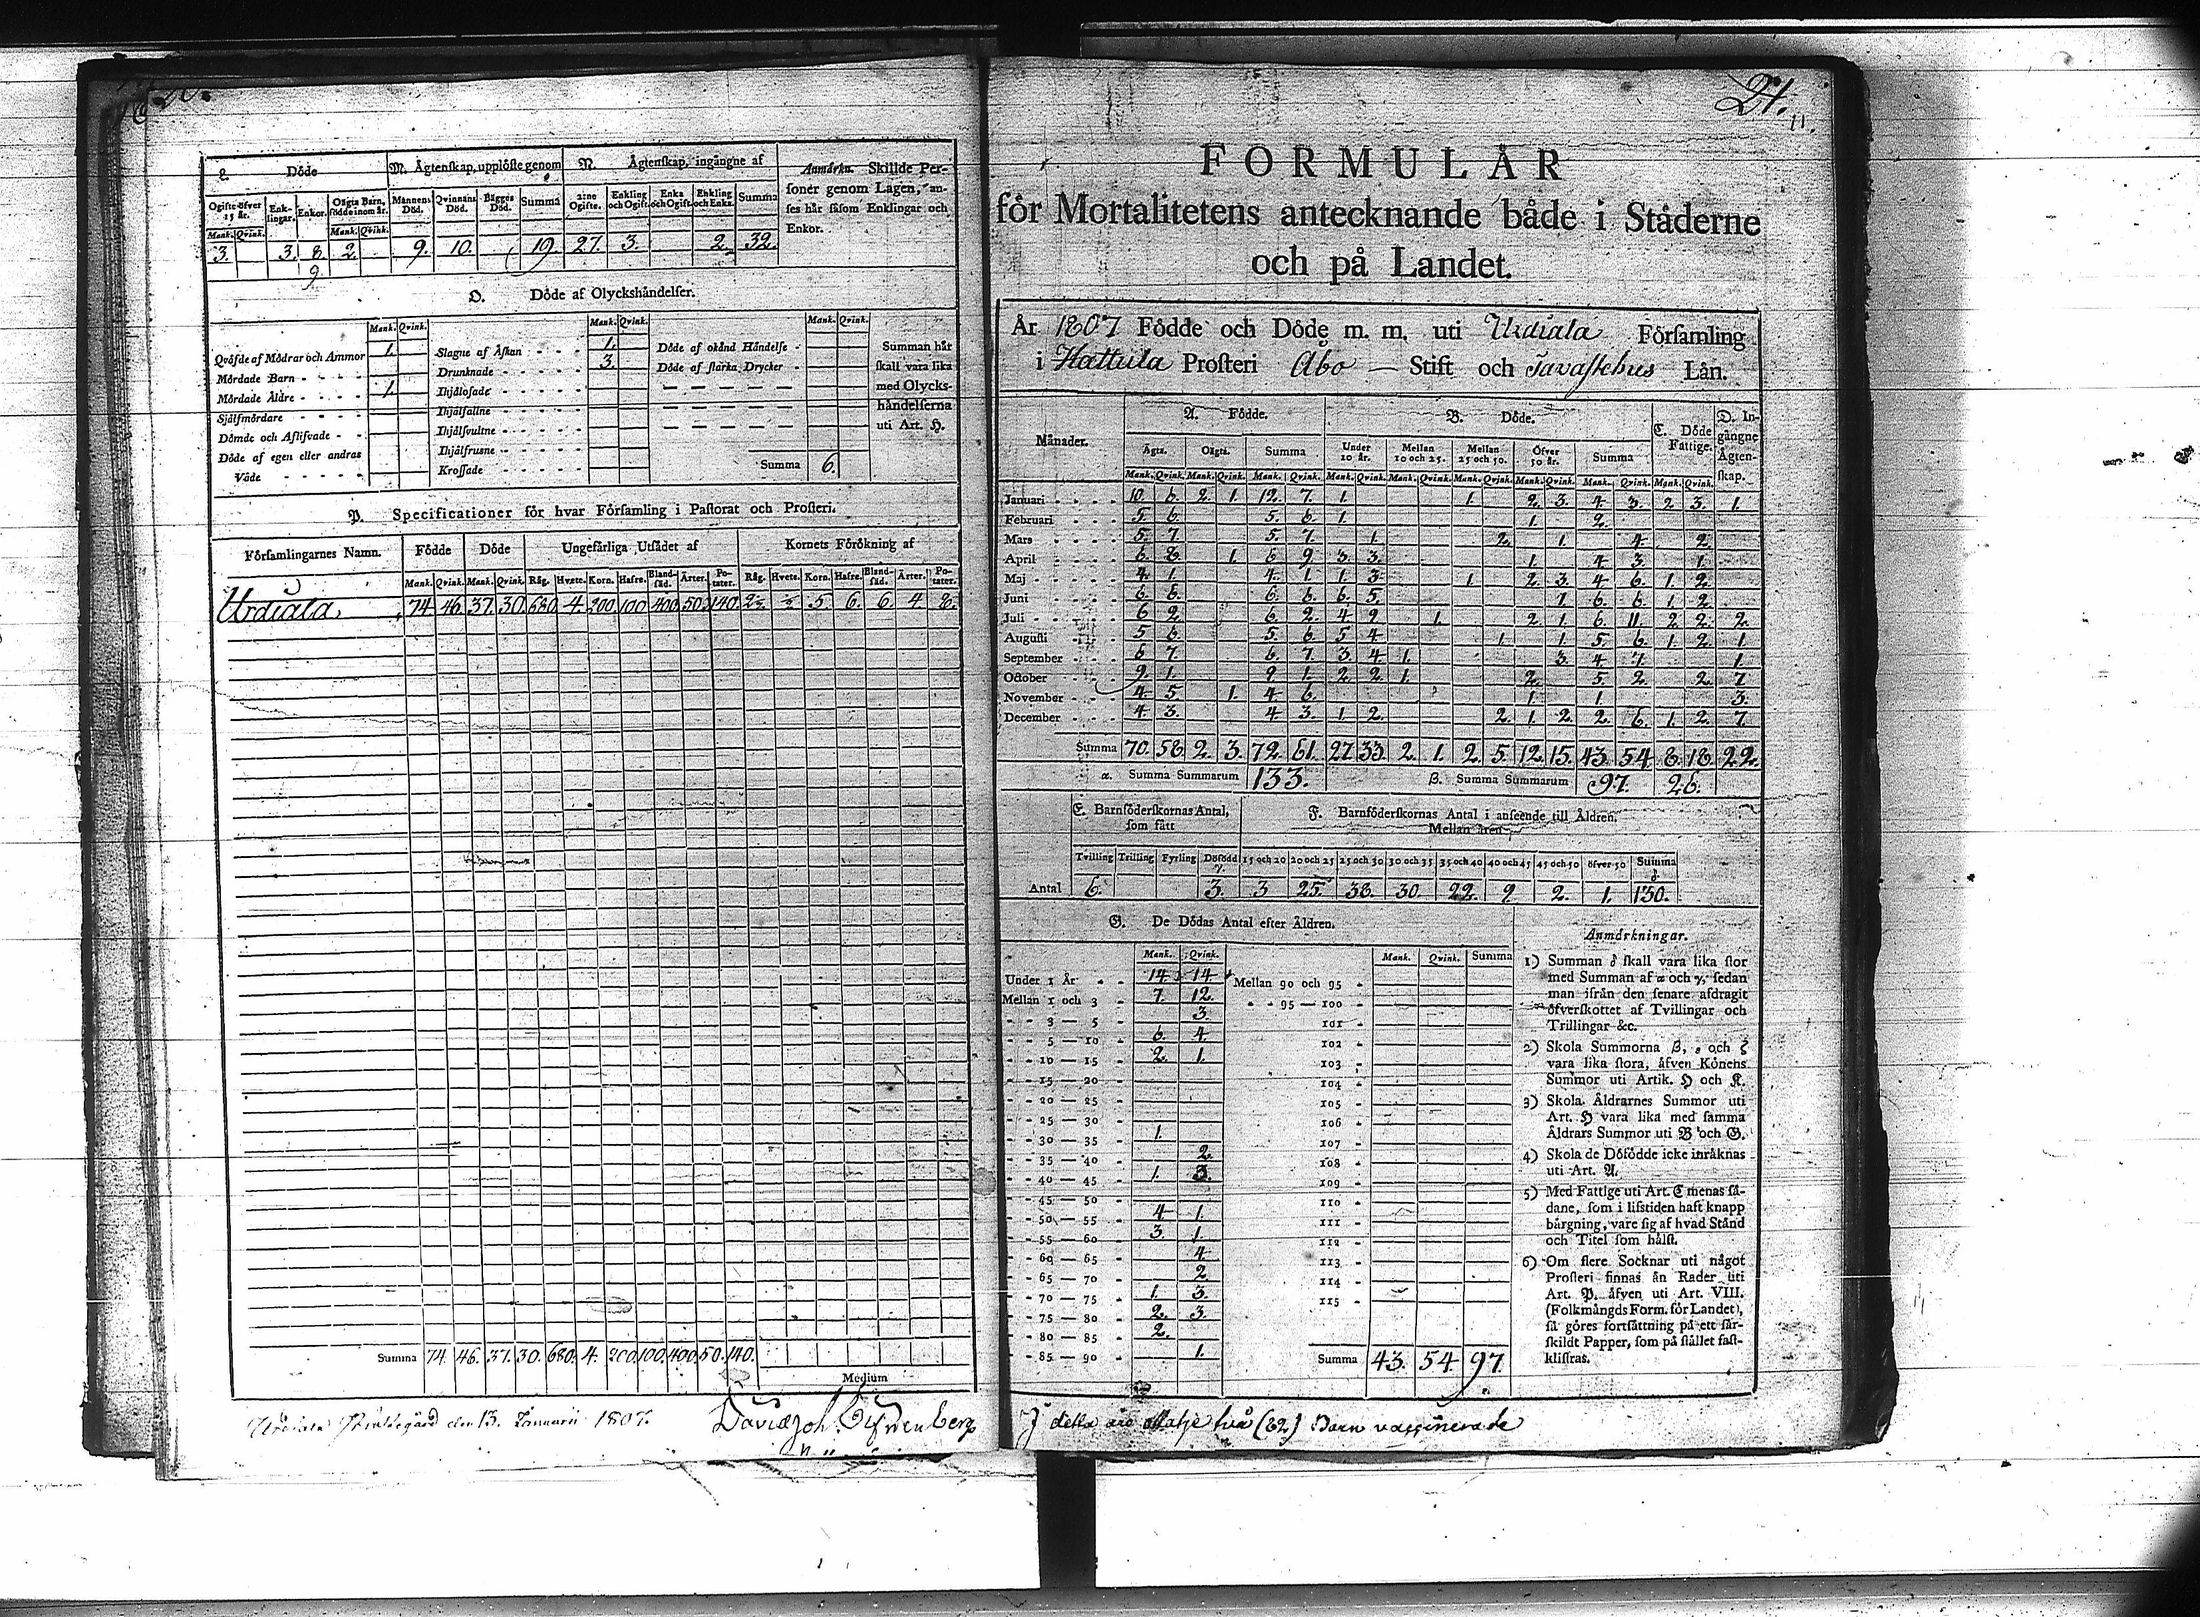 L. Döde
M. Ägtenskap, upplöste genom
N. Ägtenskap, ingångne af
Anmärkn. Skillde Per-
soner genom Lagen, an-
ses här såsom Enklingar och
Enkor.
Ogifte öfver 15 år. Enk-lingar. Enkor. Oägta Barn, födde inom år. Mannens Död. Qvinnans Död. Bägges Död. Summa 2:ne Ogifte. Enkling och Ogift. Enka och Ogift. Enkling och Enka. Summa
Mank. Qvink. Mank. Qvink.
3. 3. 8. 2. 9. 10. 19. 27. 3. 2 32.
9.
O. Döde af Olyckshändelser.
Mank. Qvink. Mank. Qvink. Mank. Qvink.
Qväfde af Mödrar och Ammor 1. Slagne af Åskan - - - 1. Döde af okänd Händelse - Summan här
Mördade Barn - - - - Drunknade - - - - 3. Döde af starka Drycker - skall vara lika
Mördade Äldre - - - - 1. Ihjälosade - - - - med Olycks-
Sjelfmördare - - - - Ihjälfallne - - - - händelserna
Dömde och Aflifvade - - Ihjälsvultne - - - - uti Art. H.
Döde af egen eller andras Ihjälfrusne - - - -
Våde - - - - Krossade - - - - Summa 6.
P. Specificationer för hvar Församling i Pastorat och Prosteri.
Församlingarnes Namn. Födde Döde Ungefärliga Utsädet af Kornets Förökning af
Mank. Qvink. Mank. Qvink. Råg. Hvete. Korn. Hafre. Bland-säd. Ärter. Po-tater. Råg. Hvete. Korn. Hafre. Bland-säd. Ärter. Po-tater.
Urdiala 74. 46. 37. 30. 680. 4. 200. 100. 400. 50. 140. 5. 6. 6. 4. 8.
Summa 74. 46. 37. 30. 680. 4. 200. 100. 400. 50. 140.
Medium
Urdiala Prästegård den 13. Januarii 1807.
David Joh.
21.
11.
FORMULÄR
för Mortalitetens antecknande både i Städerne
och på Landet.
År 1807 Födde och Döde m. m. uti Urdiala Församling
i Hattula Prosteri Åbo — Stift och Tavastehus Län.
Månader. A. Födde. B. Döde. C. Döde Fattige. D. In-gångne Ägten-skap.
Ägta. Oägta. Summa Under 10 år. Mellan 10 och 25. Mellan 25 och 50. Öfver 50 år. Summa
Mank. Qvink. Mank. Qvink. Mank. Qvink. Mank. Qvink. Mank. Qvink. Mank. Qvink. Mank. Qvink. Mank. Qvink. Mank. Qvink.
Januari - - - - 10. 6. 2. 1. 12. 7. 1. 1. 2. 3. 4. 3. 2. 3. 1.
Februari - - - - 5. 6. 5. 6. 1. 1. 2.
Mars - - - - 5. 7. 5. 7. 1. 2. 1. 4. 2.
April - - - - 6. 8. 1. 6. 9. 3. 3. 1. 4. 3. 1.
Maj - - - - 4. 1. 4. 1. 1. 3. 1. 2. 3. 4. 6. 1. 2.
Juni - - - - 6. 8. 6. 8. 6. 5. 1. 6. 6. 1. 2.
Juli - - - - 6. 2. 6. 2. 4. 9. 1. 2. 1. 6. 11. 2. 2. 2.
Augusti - - - - 5. 6. 5. 6. 5. 4. 1. 1. 5. 6. 1. 2. 1.
September - - - - 6. 7. 6. 7. 3. 4. 1. 3. 4. 7. 1.
October - - - 9. 1. 9. 1. 2. 2. 1. 2. 5. 2. 2. 7.
November - - - 4. 5. 1. 4. 6. 1. 1. 3.
December - - - - 4. 3. 4. 3. 1. 2. 2. 1. 2. 2. 6. 1. 2. 7.
Summa 70. 58. 2. 3. 72. 61. 27. 33. 2. 1. 2. 5. 12. 15. 43. 54. 8. 18. 22.
α. Summa Summarum 133. β. Summa Summarum 97. 26.
E. Barnföderskornas Antal, som fått
F. Barnföderskornas Antal i anseende till Åldren. Mellan åren
Tvilling Trilling Fyrling Dödfödd γ. 15 och 20 20 och 25 25 och 30 30 och 35 35 och 40 40 och 45 45 och 50 öfver 50 Summa δ
Antal 6. 3. 3 25. 38. 30. 22. 9 2. 1. 130.
G. De Dödas Antal efter Åldren.
Mank. Qvink. Mank. Qvink. Summa
Under 1 År - - 14. 14 Mellan 90 och 95 -
Mellan 1 och 3 - 7. 12. - - 95 — 100 -
- - 3 — 5 - 3. 101 -
- - 5 — 10 - 6. 4. 102 -
- - 10 — 15 - 2. 1. 103 -
- - 15 — 20 - 104 -
- - 20 — 25 - 105 -
- - 25 — 30 - 106 -
- - 30 — 35 - 1. 107 -
- - 35 — 40 - 2. 108 -
- - 40 — 45 - 1. 3. 109 -
- - 45 — 50 - 110 -
- - 50 — 55 - 4. 1. 111 -
- - 55 — 60 - 3. 1. 112 -
- - 60 — 65 - 4. 113 -
- - 65 — 70 - 2. 114 -
- - 70 — 75 - 1. 3. 115 -
- - 75 — 80 - 2. 3.
- - 80 — 85 - 2.
- - 85 — 90 - 1. Summa 43. 54. 97.
Anmärkningar.
1) Summan δ skall vara lika stor
med Summan af α och γ, sedan
man ifrån den senare afdragit
öfverskottet af Tvillingar och
Trillingar &c.
2) Skola Summorna β, ε och ζ
vara lika stora, äfven Könens
Summor uti Artik. H och K.
3) Skola Åldrarnes Summor uti
Art. H vara lika med samma
Åldrars Summor uti B och G.
4) Skola de Dödfödde icke inräknas
uti Art. A.
5) Med Fattige uti Art. C menas så-
dane, som i lifstiden haft knapp
bärgning, vare sig af hvad Stånd
och Titel som hälst.
6) Om flere Socknar uti något
Prosteri finnas än Rader uti
Art. P. äfven uti Art. VIII.
(Folkmängds Form. för Landet),
så göres fortsättning på ett sär-
skildt Papper, som på stället fast-
klistras.
I detta åro åttatje två (82) Barn vaccinerade